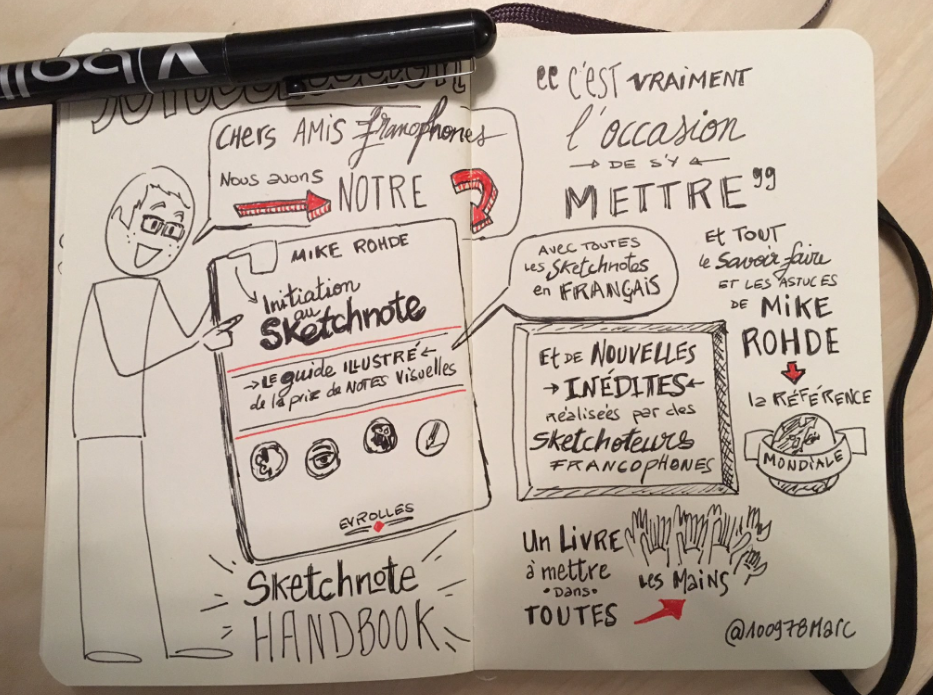 V ball
CHERS AMIS francophones
Nous avons NOTRE
MIKE ROHDE
Initiation
au
Sketchnote
LE guide ILLUSTRÉ
de la prise de NOTES Visuelles
EYROLLES
Sketchnote
HANDBOOK
"C'EST VRAIMENT
l'occasion
DE S'Y
METTRE"
AVEC TOUTES
les Sketchnotes
en FRANÇAIS
Et DE NOUVELLES
INÉDITES
réalisées par des
Sketchoteurs
FRANCOPHONES
Et TOUT
le savoir faire
ET LES ASTUCES
DE MIKE
ROHDE
la RÉFÉRENCE
MONDIALE
Un LIVRE
à mettre
DANS
TOUTES
LES MAINS
@100978Marc